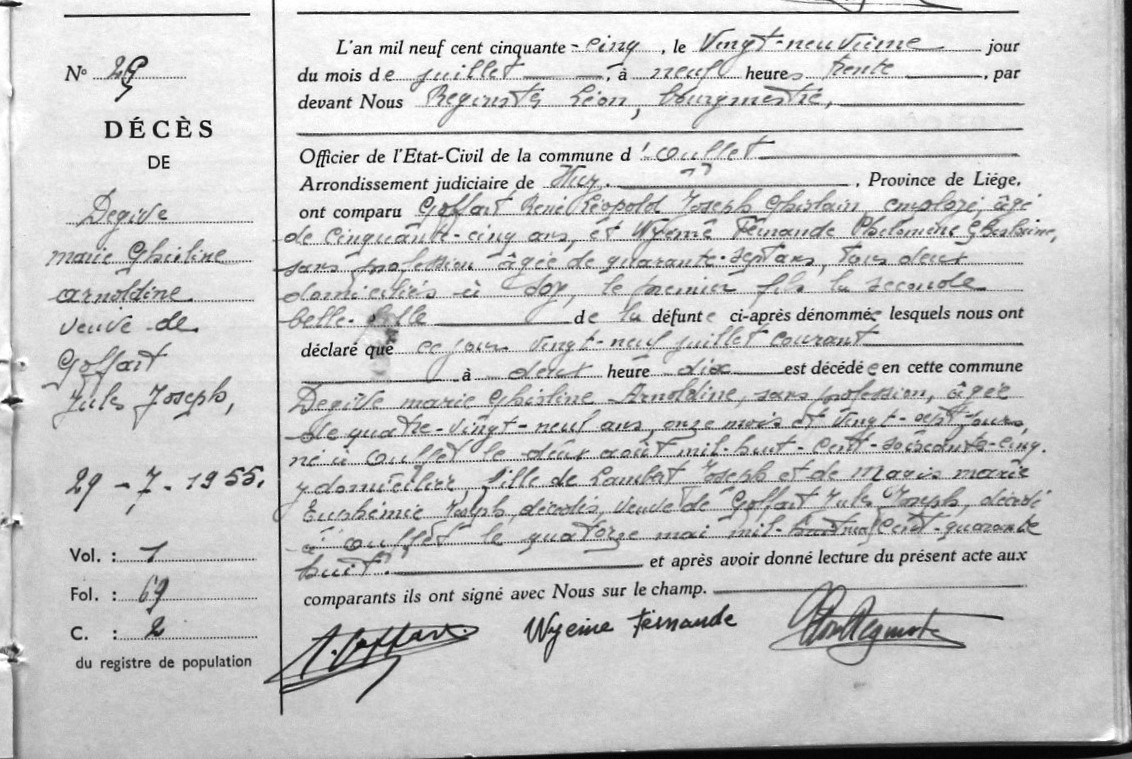 N° 29
DÉCÈS
DE
Degive
marie Ghisline
Arnoldine
veuve de
Goffart
Jules Joseph,
29 - 7 - 1955.
Vol. : 1
Fol. : 69
C. : 2
du registre de population
L'an mil neuf cent cinquante-cinq, le vingt-neuvième jour
du mois de juillet, à neuf heures trente, par
devant Nous Léon, bourgmestre,
Officier de l'Etat-Civil de la commune d'Ouffet
Arrondissement judiciaire de Huy, Province de Liége,
ont comparu Goffart René Léopold Joseph Ghislain employé, âgé
de cinquante-cinq ans, et Wyeme Fernande Philomène Ghislaine,
sans profession âgée de quarante-sept ans, tous deux
domiciliés à, le premier fils la seconde
belle-fille de la défunte ci-après dénommée lesquels nous ont
déclaré que ce jour vingt-neuf juillet courant
à deux heure dix est décédée en cette commune
Degive marie Ghisline Arnoldine, sans profession, âgée
de quatre-vingt-neuf ans, onze mois et vingt-sept jours,
né à Ouffet le deux août mil-huit-cent-soixante-cinq.
y domiciliée, fille de Lambert Joseph et de Magis marie
Euphémie Joseph, décédés, veuve de Goffart Jules Joseph, décédé
à Ouffet le quatorze mai mil-cent-quarante
huit. et après avoir donné lecture du présent acte aux
comparants ils ont signé avec Nous sur le champ.
Goffart Wyeme Fernande